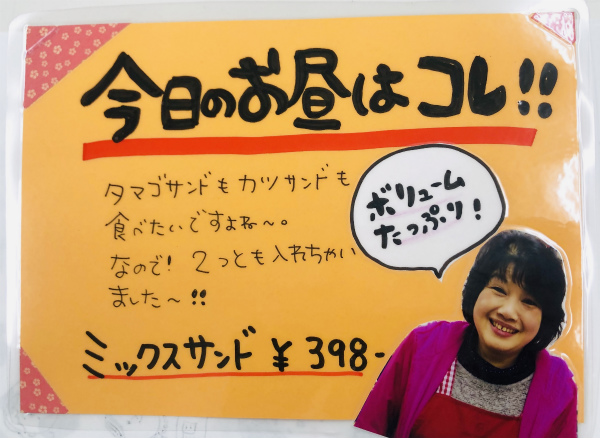 今日のお昼はコレ!!
タマゴサンドもカツサンドも
食べたいですよね〜。
なので! 2つとも入れちゃい
ました〜!!
ボリューム
たっぷり!
ミックスサンド ¥398-